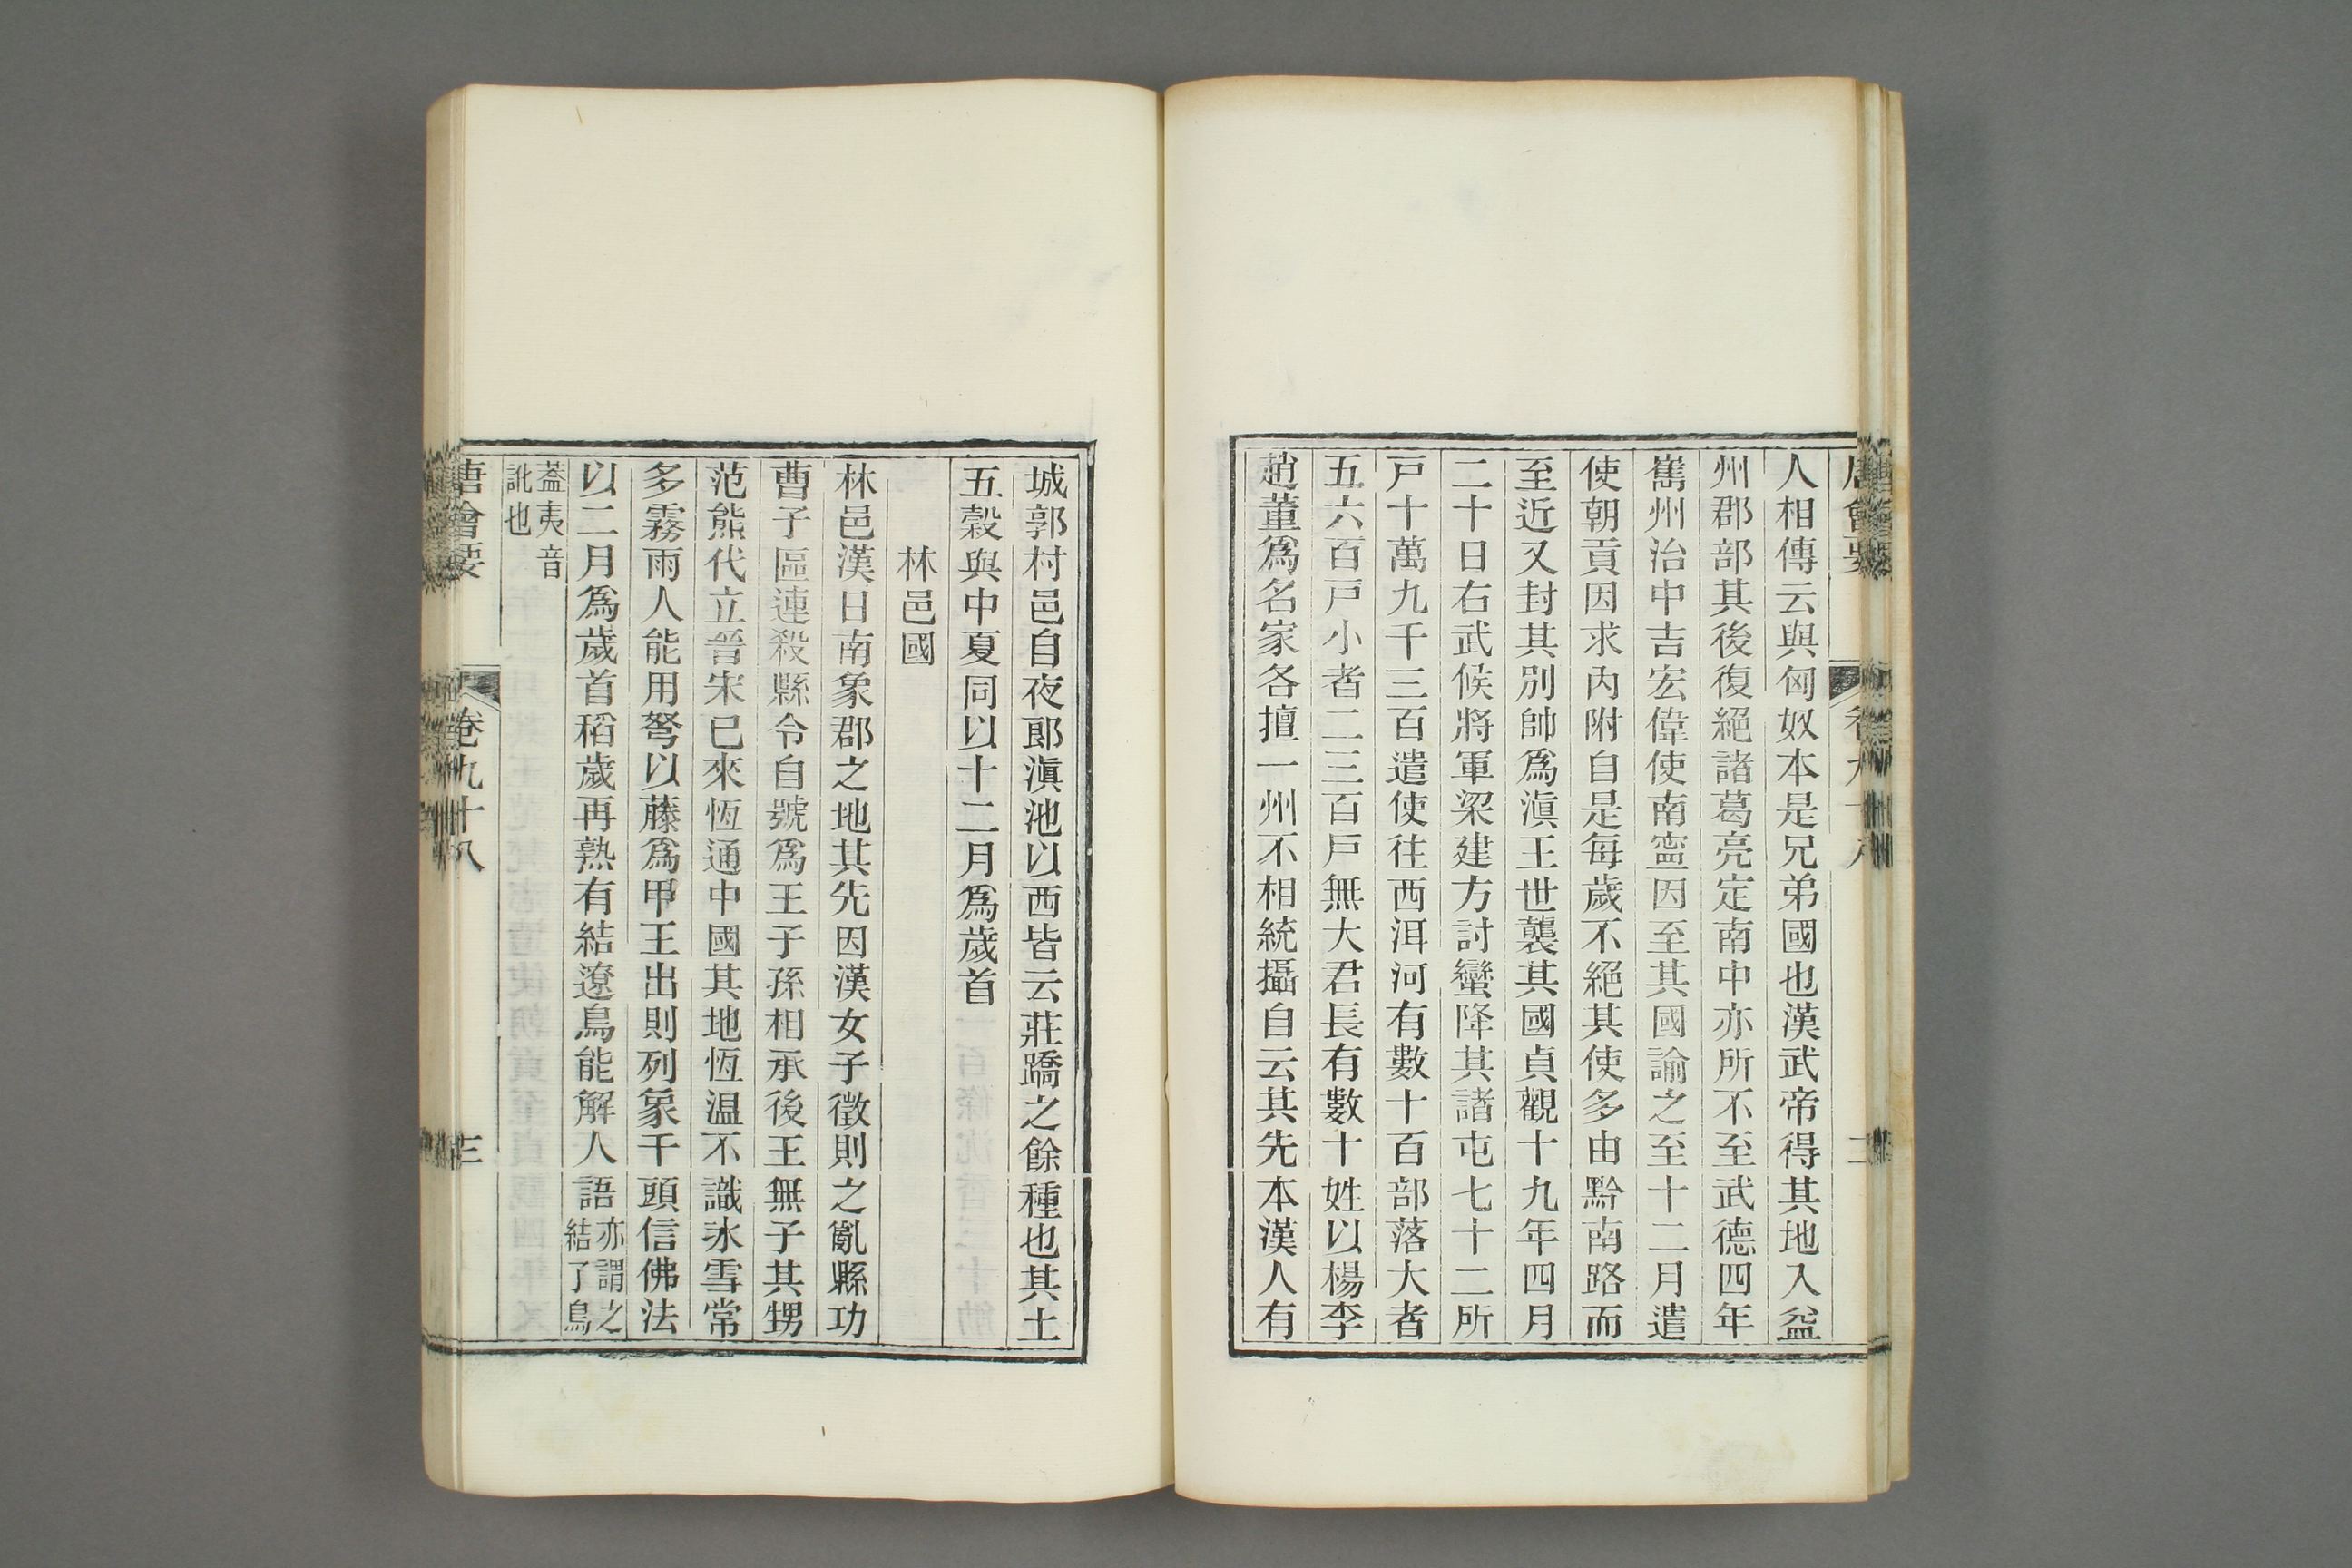 唐會要 卷九十八 二
人相傳云與匈奴本是兄弟國也漢武帝得其地入益
州郡部其後復絕諸葛亮定南中亦所不至武德四年
巂州治中吉宏偉使南寍因至其國諭之至十二月遣
使朝貢因求內附自是每歲不絕其使多由黔南路而
至近又封其別帥爲滇王世襲其國貞觀十九年四月
二十日右武候將軍梁建方討蠻降其諸屯七十二所
戸十萬九千三百遣使往西洱河有數十百部落大者
五六百戸小者二三百戸無大君長有數十姓以楊李
趙董爲名家各擅一州不相統攝自云其先本漢人有
城郭村邑自夜郞滇池以西皆云莊蹻之餘種也其土
五穀與中夏同以十二月爲歲首
林邑國
林邑漢日南象郡之地其先因漢女子徵則之亂縣功
曹子區連殺縣令自號爲王子孫相承後王無子其甥
范熊代立晉宋已來恆通中國其地恆温不識冰雪常
多霧雨人能用弩以藤爲甲王出則列象千頭信佛法
以二月爲歲首稻歲再熟有結遼鳥能解人語亦謂之結了鳥
葢夷音訛也
唐會要 卷九十八 三